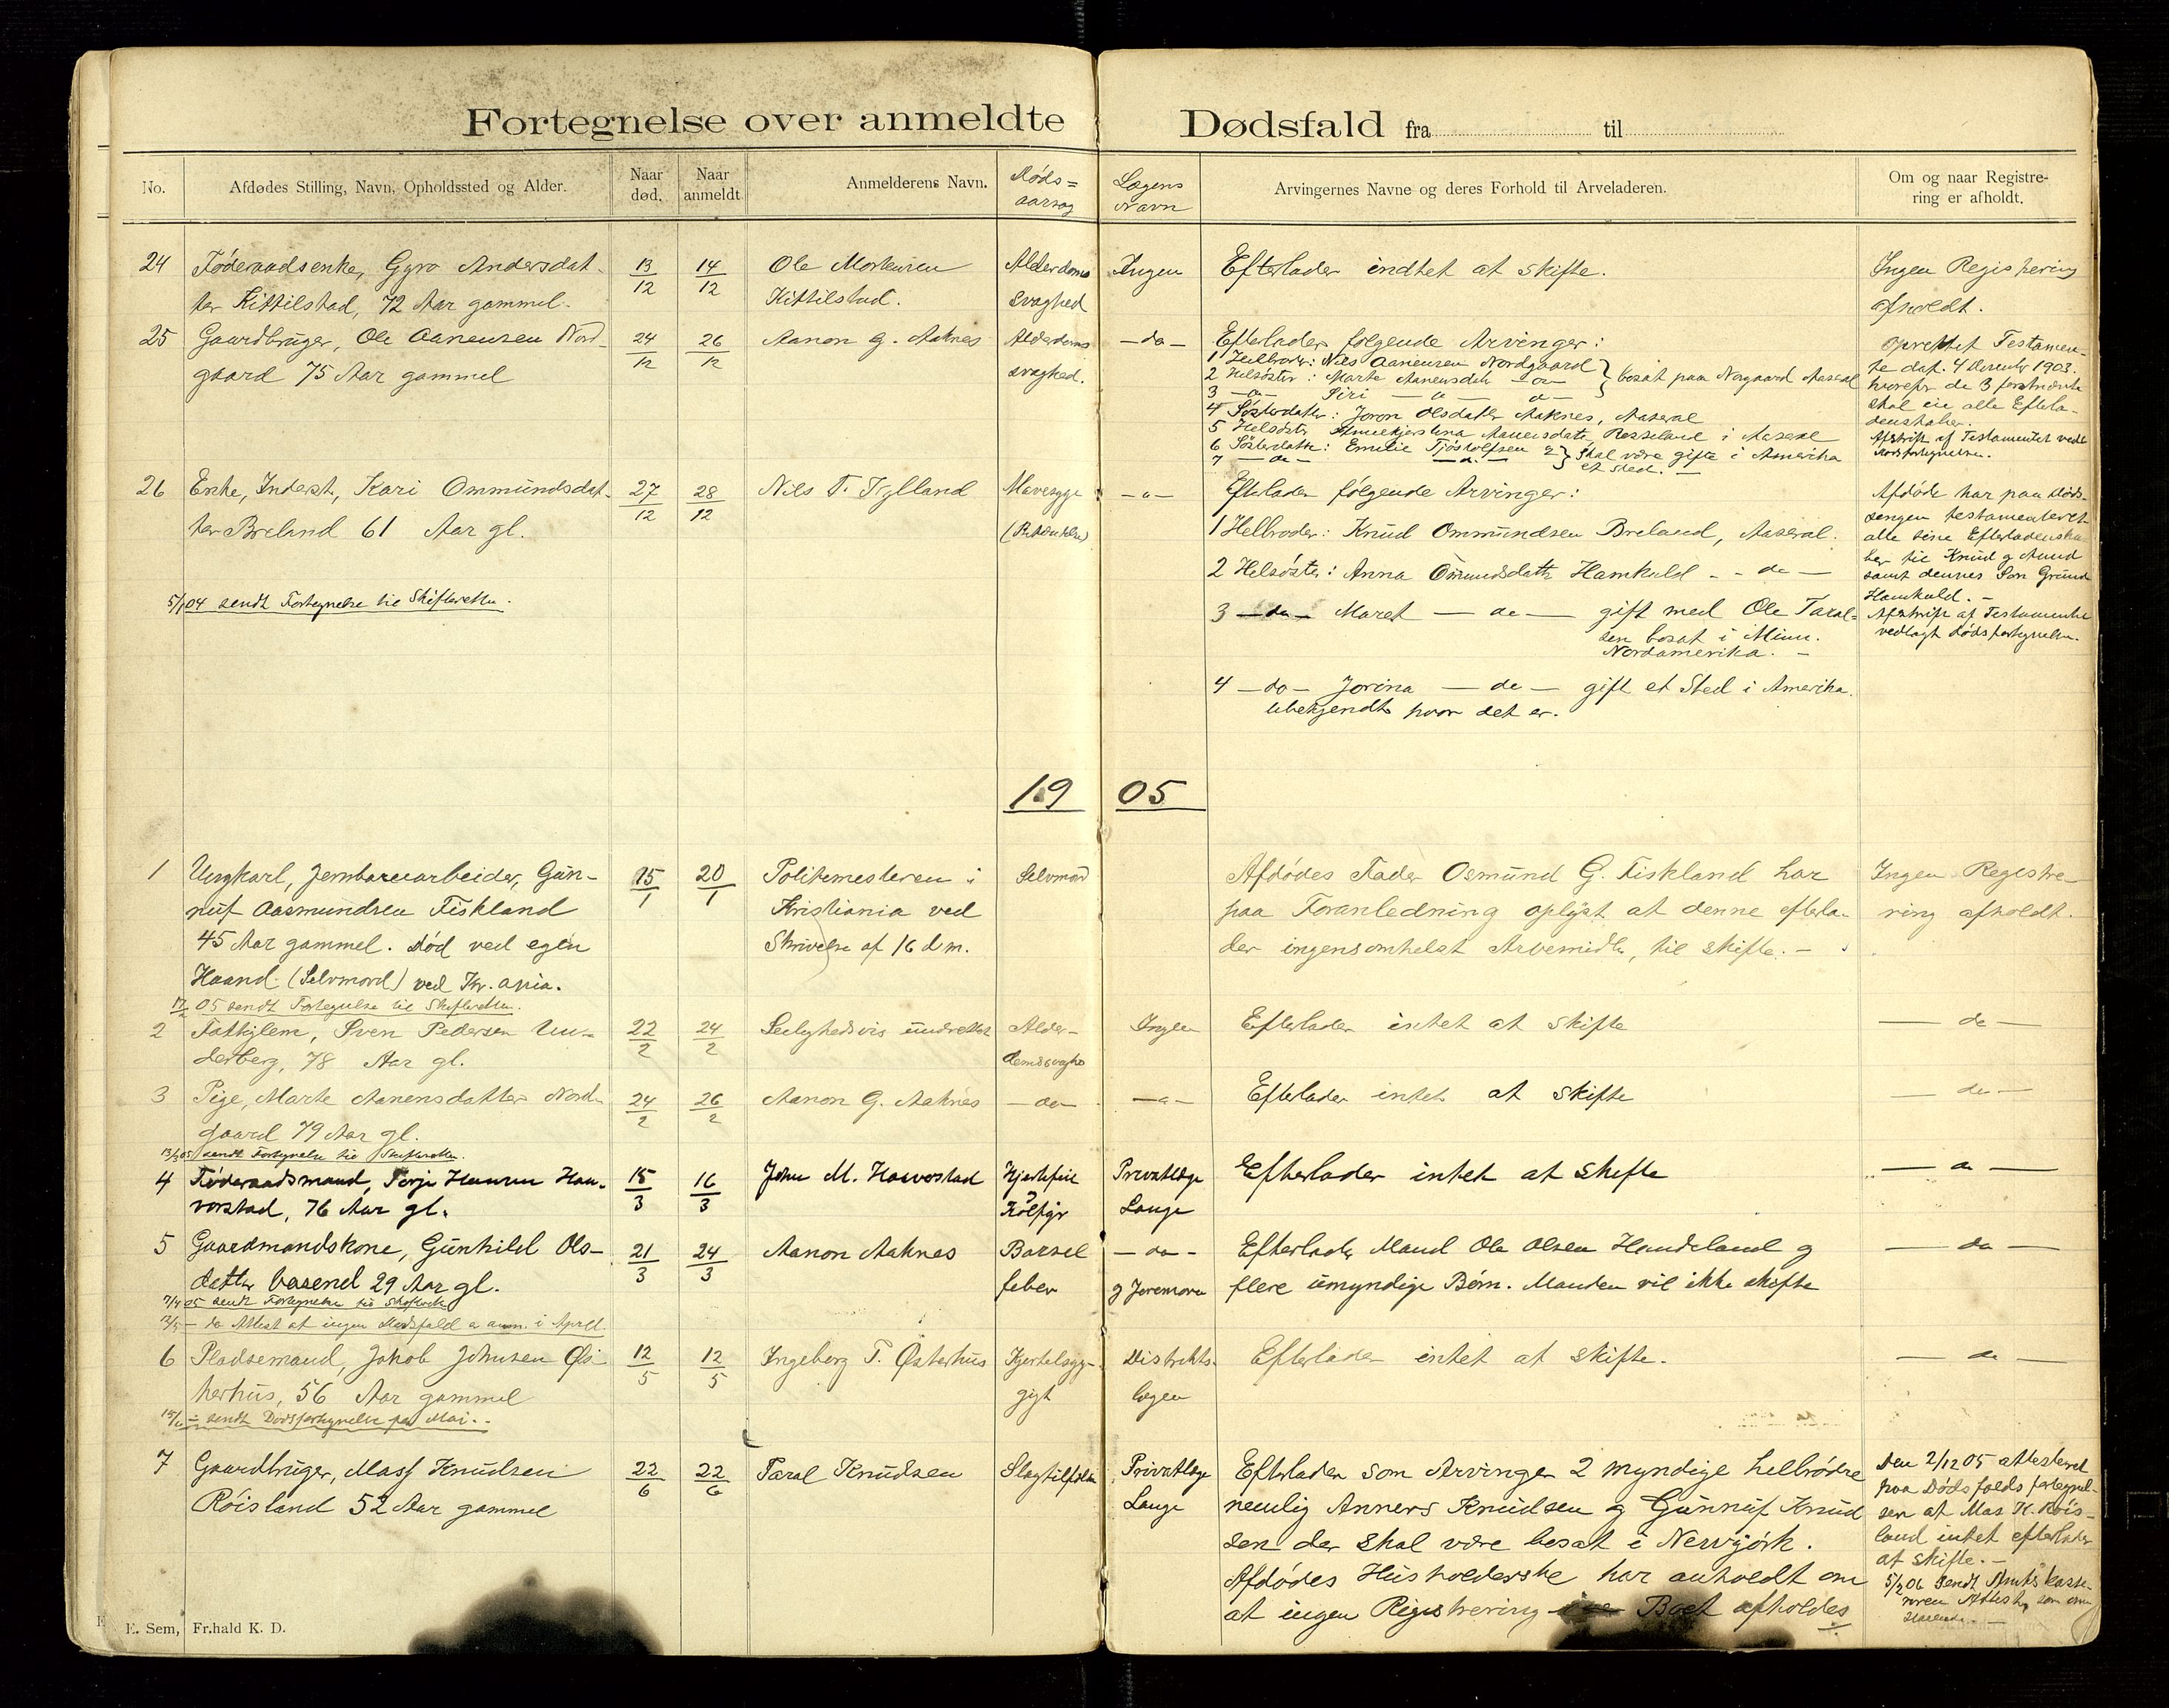 Fortegnelse over anmeldte Dødsfald fra til
No.
Afdødes Stilling, Navn, Opholdssted og Alder.
Naar død.
Naar anmeldt
Anmelderens Navn.
Døds=
aarsag
Lægens
Navn
Arvingernes Navne og deres Forhold til Arveladeren.
Om og naar Registre-
ring er afholdt.
24 Føderaadsenke, Gyro Andersdat-
ter Kittilstad, 72 Aar gammel.
13/12
14/12
Ole Mortensen
Kittilstad.
Alderdoms
svaghed
Ingen
Efterlader indtet at skifte.
Ingen Registrering
afholdt.
25 Gaardbruger, Ole Aanensen Nord-
gaard 75 Aar gammel
24/12
26/12
Aanon G. Aaknes
Alderdoms
svaghed.
— do —
Efterlader følgende Arvinger:
1 Helbroder: Nils Aanensen Nordgaard } bosat paa Norgaard Aaseral
2 Helsøster: Marte Aanensdatr — o —
3 — o — Siri — o — o —
4 Søsterdatter: Joron Olsdatter Aaknes, Aaseral
5 Helsøster Aanensdatr, Rosseland i Aaseral
6 Søsterdatter: Emilie Tjøstolfsen } skal være gifte i Amerika
7 — do — — d. — et Sted. —
oprettet Testamen-
te dat. 4 December 1903.
hvorefter de 3 førstnævnte
skal eie alle Efterla-
denskaber.
Afskrift af Testamentet vedl.
Dødsfortegnelsen.
26 Enke, Inderst, Kari Ommundsdat-
ter Breland 61 Aar gl.
27/12
28/12
Nils T. Tylland
Mavesyge
— o —
Efterlader følgende Arvinger:
1 Helbroder: Knud Ommundsen Breland, Aaseral.
2 Helsøster: Anna Omundsdattr Hamkald - - do —
3 — do — Maret — do — gift med Ole Taral-
sen bosat i Minn.
Nordamerika. —
4 — do — Jorina — do — gift et Sted i Amerika.
Ubekjendt hvor det er.
Afdøde har paa døds-
sengen testamenteret
alle sine Efterladenska-
ber til Knud g Aanund
samt dennes Søn
Hamkald. —
Afskrift af Testamente
vedlagt dødsfortegnelsen.
5/1 04 sendt Fortegnelse til Skifteretten.
19 05
1 Ungkarl, Jernbanearbeider, Gun-
nuf Aasmundsen Fiskland
45 Aar gammel. Død ved egen
Haand. (Selvmord) ved Kr.ania.
15/1
20/1
Politimesteren i
Kristiania ved
Skrivelse af 16 d.m.
Selvmord
Afdødes Fader Osmund G. Fiskland har
paa Foranledning oplyst at denne efterla-
der ingensomhelst Arvemidler, til skifte. —
Ingen Registre-
ring afholdt.
17/2 05 sendt Fortegnelse til Skifteretten.
2 Fattiglem, Sven Pedersen Un-
derberg, 78 Aar gl.
22/2
24/2
Leilighedsvis undrettet
Alder-
domssvaghe
Ingen
Efterlader intet at skifte
— do —
3 Pige, Marte Aanensdatter Nord-
gaard 79 Aar gl.
24/2
26/2
Aanon G. Aaknes
— do —
— o —
Efterlader intet at skifte
— do —
13/3 05 sendt Fortegnelse til Skifteretten.
4 Føderaadsmand, Terje Hansen Hau-
vorstad, 76 Aar gl.
15/3
16/3
John M. Hovorstad
Hjertefeil
Privatlæge
Lauge
Efterlader intet at skifte
— do —
5 Gaardmandskone, Gunhild Ols-
datter 29 Aar gl.
21/3
24/3
Aanon Aaknes
Barsel
feber
— do —
g Joremoren
Efterlader Mand Ole Olsen Haadeland g
flere umyndige Børn. Manden vil ikke skifte
— do —
7/4 05 sendt Fortegnelse til Skifteretten
12/5 — do Attest at ingen Dødsfald a anm. i April.
6 Pladsemand, Jakob Johnsen Øs-
terhus, 56 Aar gammel
12/5
12/5
Ingeborg T. Østerhus
gigt
Distrikts-
lægen
Efterlader intet at skifte.
— do —
15/6 — sendt Dødsfortegnelse for Mai.
7 Gaardbruger, Mass Knudsen
Røisland 52 Aar gammel
22/6
22/6
Taral Knudsen
Slagtilfælde
Privatlæge
Lauge
Efterlader som Arvinger 2 myndige helbrødre
nemlig Anners Knudsen g Gunnuf Knud
sen der skal være bosat i Newyørk.
Afdødes Husholderske har anholdt om
at ingen Registrering Boet afholdes
Den 2/12 05 attesteret
paa Dødsfalds fortegnel-
sen at Mas K. Røis-
land intet efterlader
at skifte. —
5/2 06 sendt Amtskasse-
reren Attest, som om
E. Sem, Fr.hald K. D.